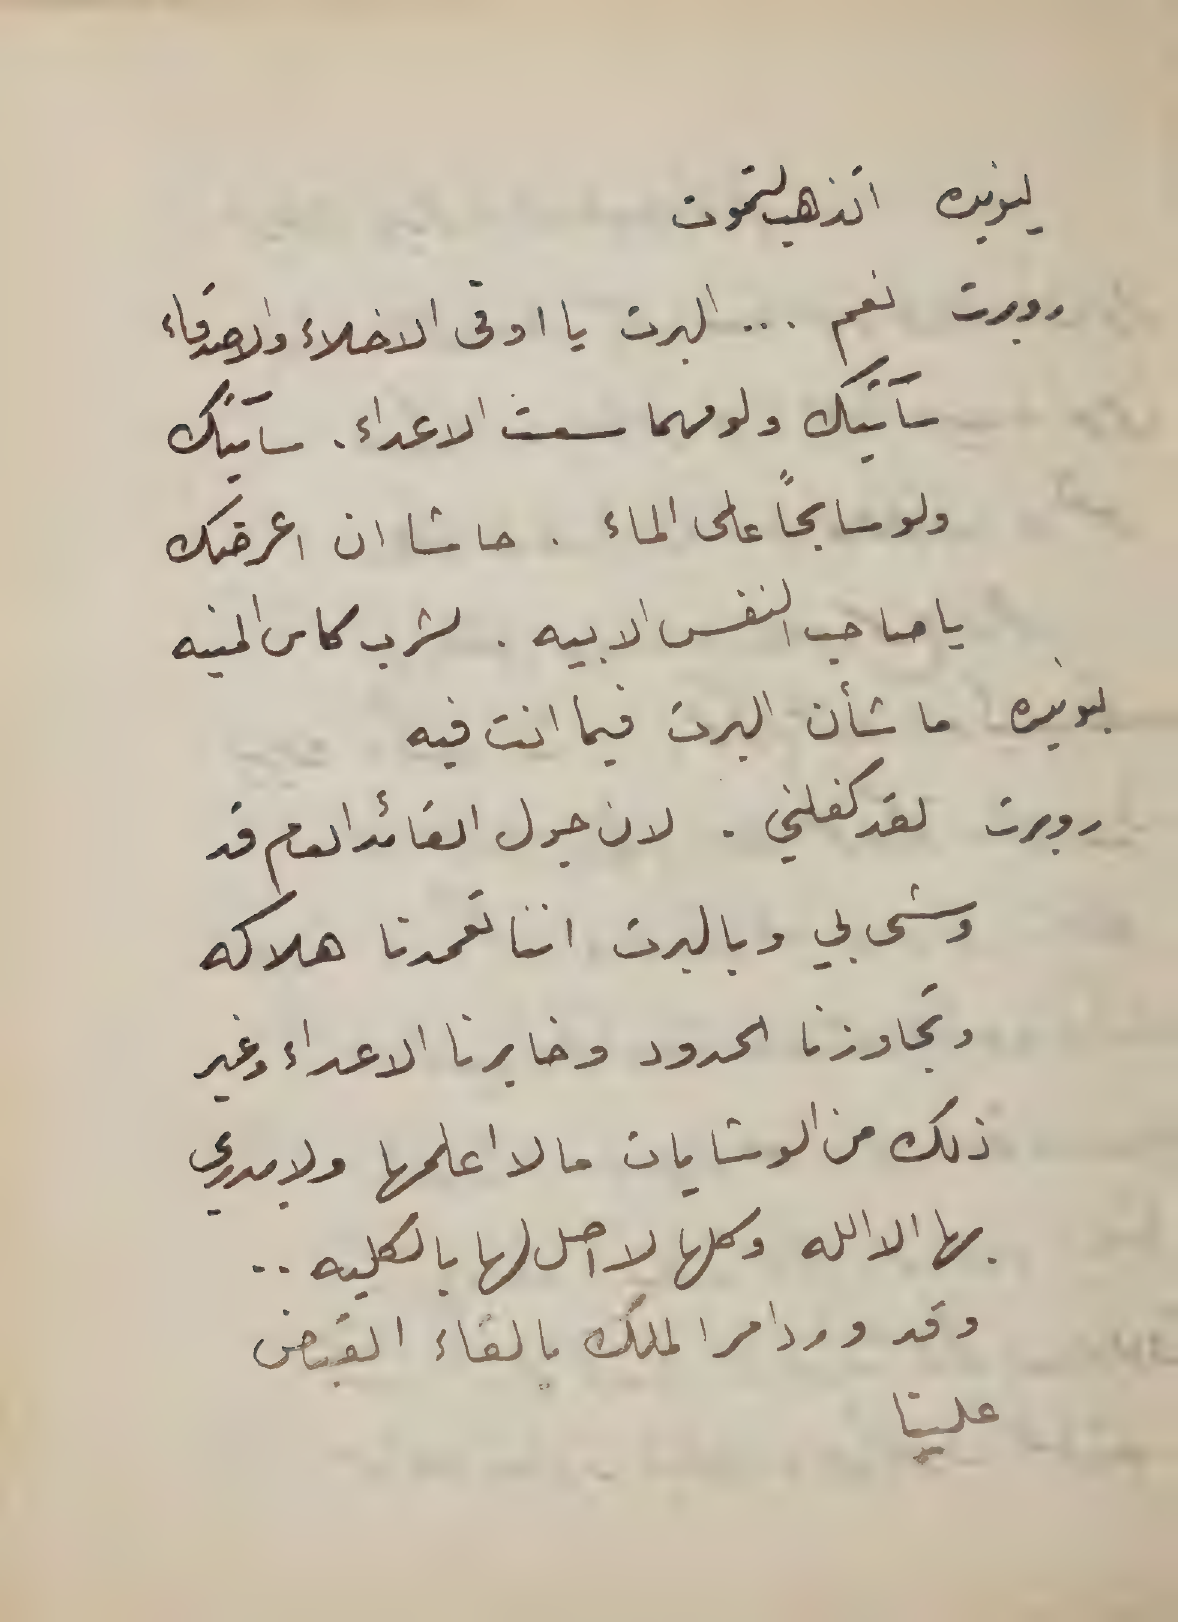 ليونيده اتذهب لتموت
روبرت نعم ... البرت يا اوفى الاخلاء والاصدقاء
سآتيك ولو مهما سعت الاعداء. سآتيك
ولو سابحاً على الماء . حاشا ان اعرضك
يا صاحب النفس الابيه . لشرب كاس المنيه
ليونيده ما شأن البرت فيما انت فيه
روبرت لقد كفلني . لان جول القائد العام قد
وشى بي وبالبرت اننا تعمدنا هلاكه
وتجاوزنا الحدود وخابرنا الاعداء وغير
ذلك من الوشايات ما لا اعلمها ولا يدري
بها الا الله وكلها لا اصل لها بالكليه ..
وقد ورد امر الملك بالقاء القبض
علينا